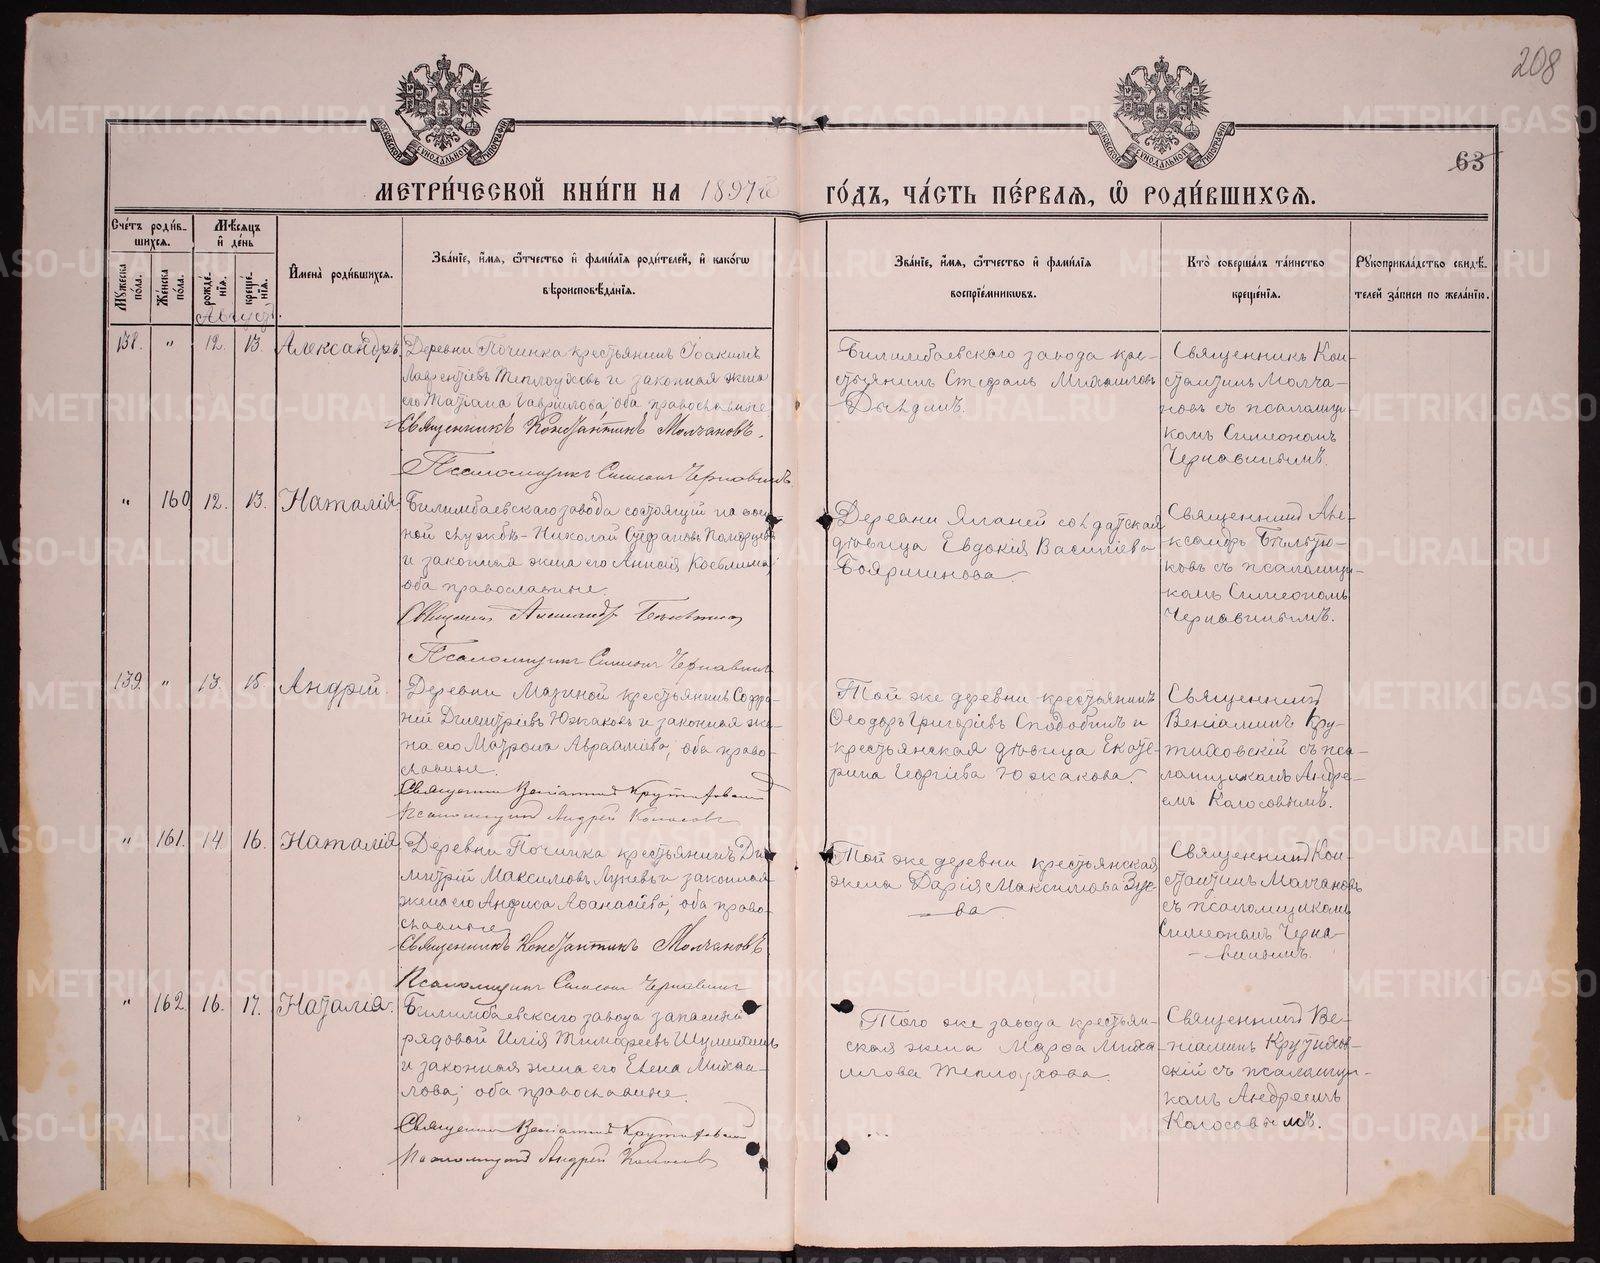 208
63
МЕТРИ́ЧЕСКОЙ КНИ́ГИ НА 1897й ГО́ДЪ, ЧА́СТЬ ПЕ́РВАѦ, Ѽ РОДИ́ВШИХСѦ.
Сче́тъ роди́вшихсѧ.
Мꙋ́жеска по́ла.
Же́нска по́ла.
Мѣ́сѧцъ и де́нь
рожде́нїѧ.
креще́нїѧ.
Августъ.
Имена̀ роди́вшихсѧ.
Зва́нїе, и́мѧ, ѻ́тчество и фами́лїѧ роди́телей, и како́гѡ
вѣроисповѣ́данїѧ.
Зва́нїе, и́мѧ, ѻ́тчество и фами́лїѧ
воспрїе́мникѡвъ.
Кто̀ соверша́лъ та́инство
креще́нїѧ.
Рꙋкоприкла́дство свидѣ́телей за́писи по жела́нїю.
138. " 12. 13. Александръ.
Деревни Починка крестьянинъ Іоакимъ
Лаврентіевъ Теплоуховъ и законная жена
его Татіана Гавріилова оба православные
Священникъ Константинъ Молчановъ.
Псаломщикъ Симеонъ Чернавинъ
Билимбаевскаго завода кре-
стьянинъ Стефанъ Михаиловъ
Священникъ Кон-
стантинъ Молча-
новъ съ псаломщи-
комъ Симеономъ
Чернавинымъ.
" 160 12. 13. Наталія
Билимбаевскаго завода состоящій на воен-
ной службѣ Николай Стефановъ
и законная жена его Анисія
оба православные.
Священникъ Александръ
Псаломщикъ Симеонъ Чернавинъ
Деревни солдатская
дѣвица Евдокія Василіева
Бояршинова.
Священникъ Але-
ксандръ
ковъ съ псаломщи-
комъ Симеономъ
Чернавинымъ.
139. " 13. 15. Андрей.
Деревни Мазиной крестьянинъ Софро-
ній Димитріевъ Южаковъ и законная же-
на его Матрона Авраамiева; оба право-
славные.
Священникъ Веніаминъ
Псаломщикъ Андрей Колосовъ
Той же деревни крестьянинъ
Ѳеодоръ Григоріевъ Сподобинъ и
крестьянская дѣвица Екате-
рина Георгіева Южакова.
Священникъ
Веніаминъ Кру-
тиховскій съ пса-
ломщикомъ Андре-
емъ Колосовымъ.
" 161. 14. 16. Наталія
Деревни Починка крестьянинъ Ди-
митрій Максимовъ и законная
жена его Анфиса Аѳанасіева; оба право-
славные
Священникъ Константинъ Молчановъ
Псаломщикъ Симеонъ Чернавинъ
Той же деревни крестьянская
жена Дарія Максимова Зуе-
ва
Священникъ Кон-
стантинъ Молчановъ
съ псаломщикомъ
Симеономъ Черна-
винымъ.
" 162 16. 17. Наталія.
Билимбаевскаго завода запасный
рядовой Илія Тимофеевъ
и законная жена его Елена Михаи-
лова; оба православные.
Священникъ Веніаминъ
Псаломщикъ Андрей Колосовъ
Того же завода крестьян-
ская жена Марѳа Миха-
илова Теплоухова.
Священникъ Ве-
ніаминъ Крутихов-
скій съ псаломщи-
комъ Андреемъ
Колосовымъ.
METRIKI.GASO-URAL.RU